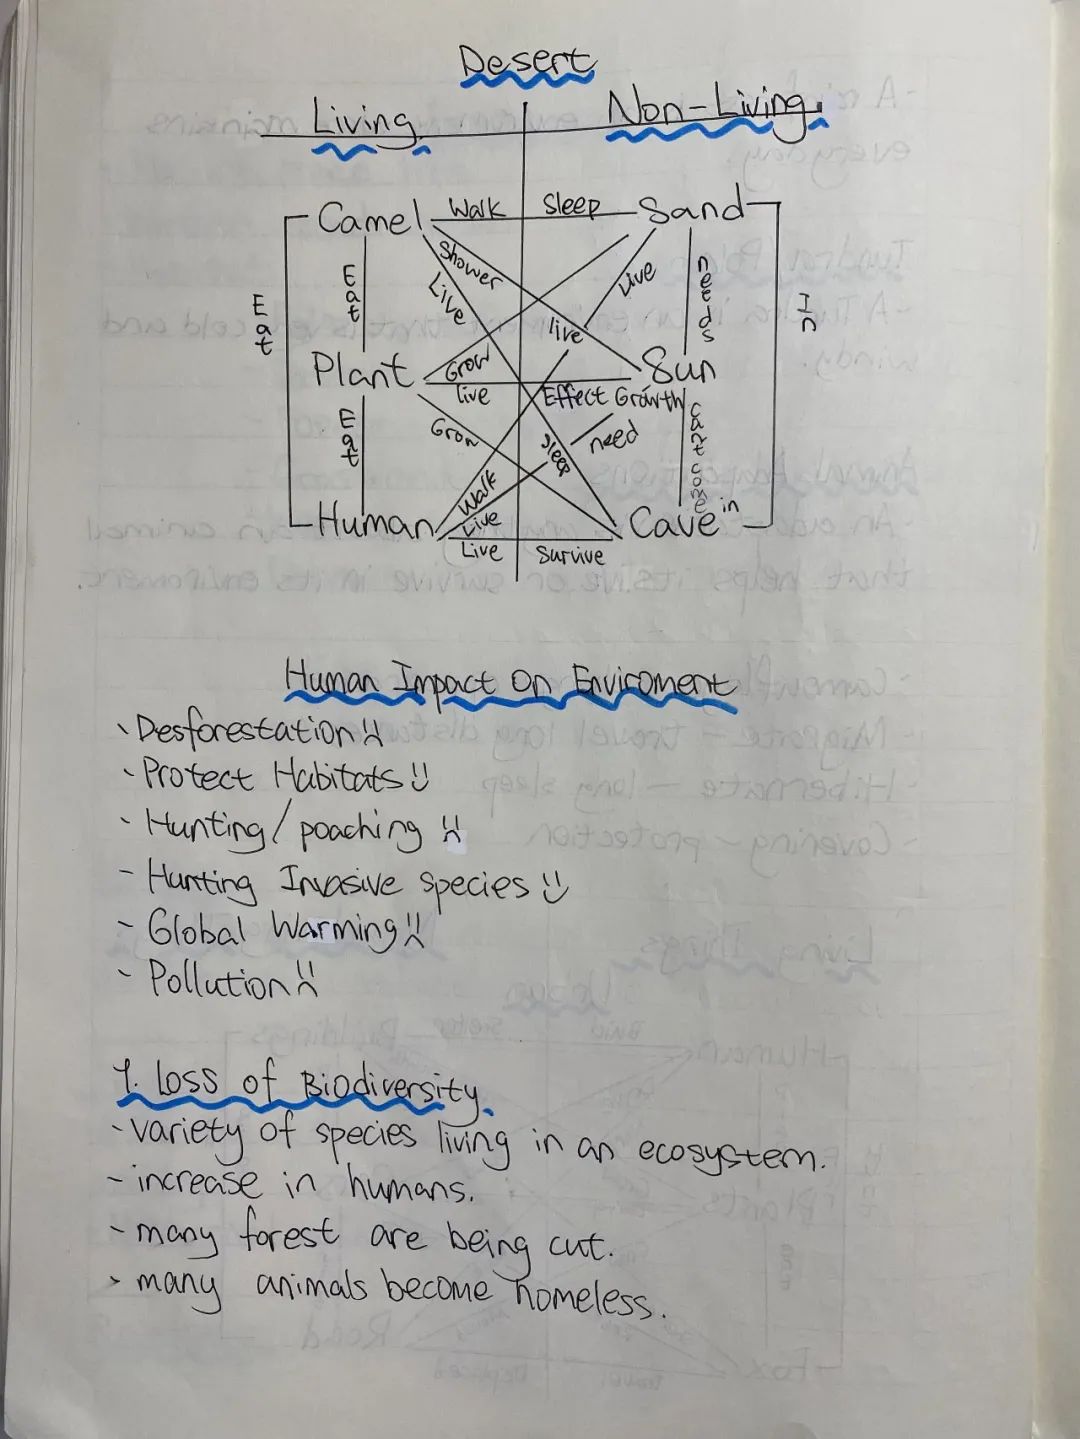 Desert
Living. Non-Living.
Camel Walk Sleep Sand
Shower
Eat Eat Live Live needs In
live
Plant Grow Sun
live Effect Growth
Eat Grow need can't come in
sleep
Walk
Human Live Cave
Live Survive
Human Impact on Enviroment
- Desforestation
- Protect Habitats
- Hunting/poaching
- Hunting Invasive species
- Global Warming
- Pollution
1. Loss of Biodiversity.
- variety of species living in an ecosystem.
- increase in humans.
- many forest are being cut.
- many animals become homeless.